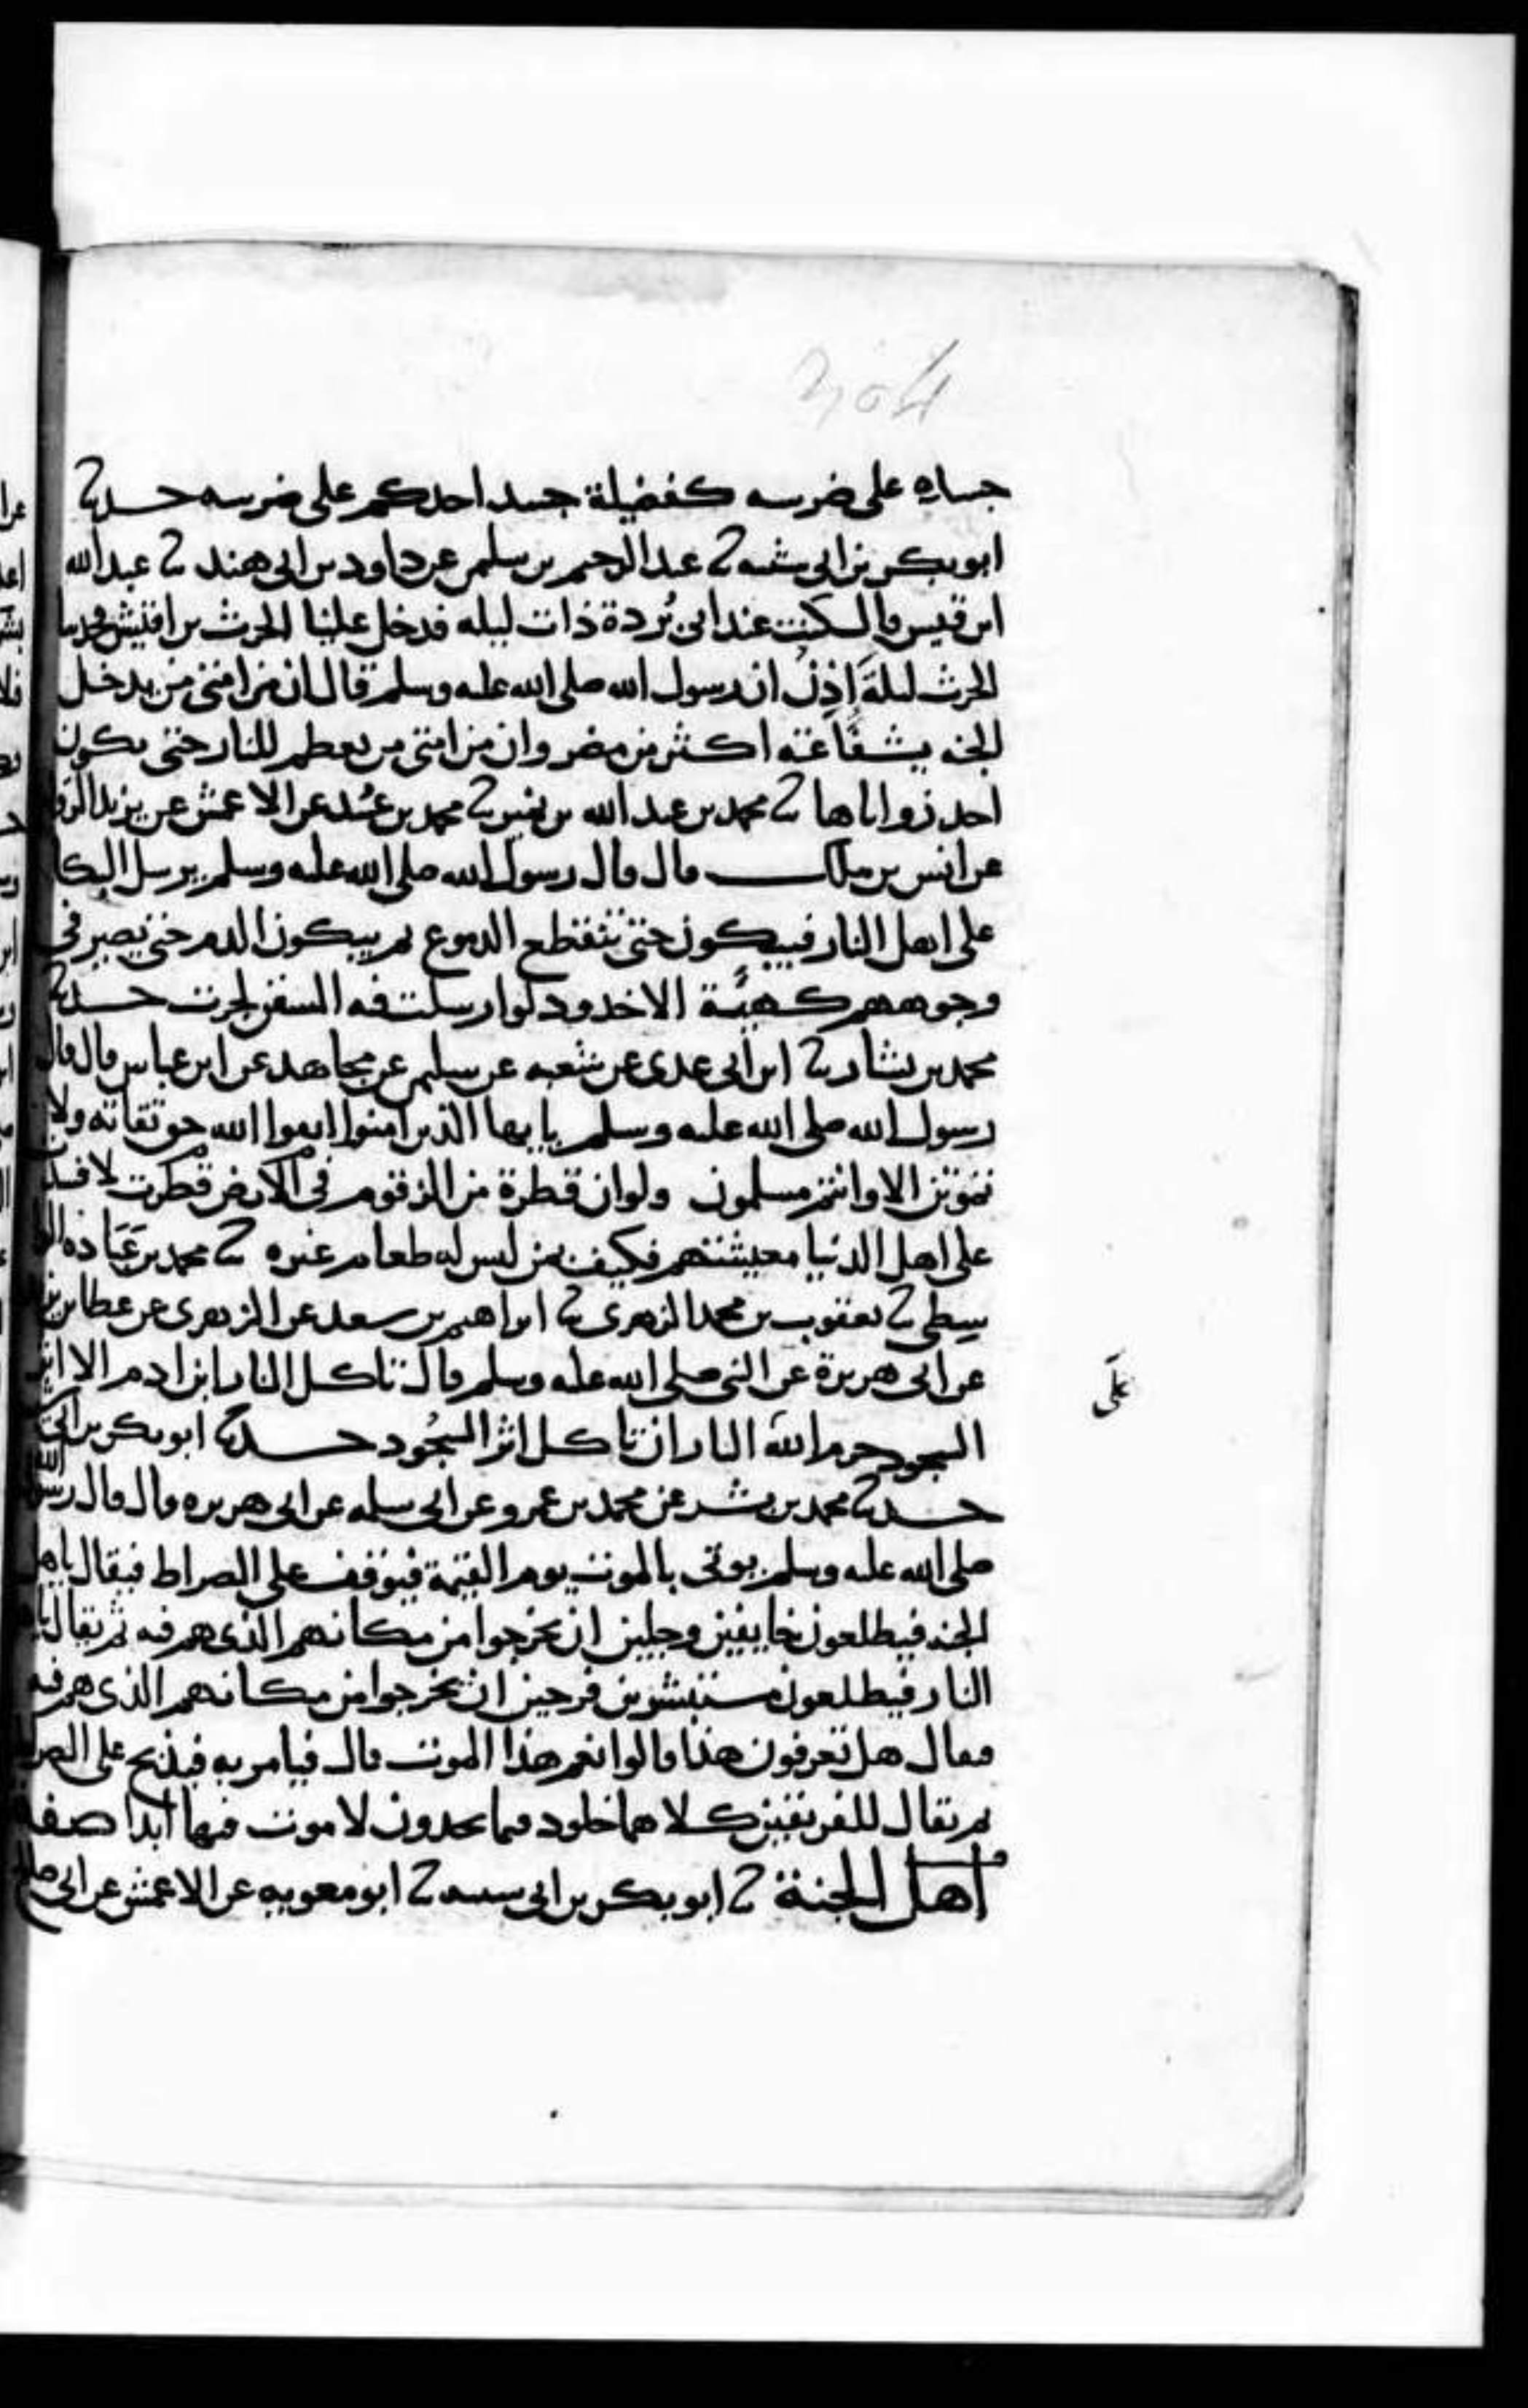 جساده على ضرسه كفضيلة جسد احدكم على ضرسه حدثنا
ابو بكر بن ابى شيبه ثنا عبد الرحيم بن سليمن عن داود بن ابى هند ثنا عبد الله
ابن قيس قال كنت عند ابى بُردة ذات ليله فدخل علينا الحرث بن اقيش فحدثنا
الحرث ليلةَ اذٍ ان رسول الله صلى الله عليه وسلم قال ان من امتى من يدخل
الجنه بشفاعته اكثر من مضر وان من امتى من يعظم للنار حتى يكون
احد زواياها ثنا محمد بن عبد الله بن نمير ثنا محمد بن عُبيد عن الاعمش عن يزيد الرقا
عن انس بن ملك قال قال رسول الله صلى الله عليه وسلم يرسل البكا
على اهل النار فيبكون حتى تنقطع الدموع ثم يبكون الدم حتى تصير فى
وجوههم كهيئة الاخدود لو ارسلت فيه السفن لجرت حدثنا
محمد بن بشار ثنا ابن ابى عدى عن شعبه عن سليمن عن مجاهد عن ابن عباس قال قال
رسول الله صلى الله عليه وسلم يا يها الذين امنوا اتقوا الله حق تقاته ولا
تموتن الا وانتم مسلمون ولو ان قطرة من الزقوم فى الارض قطرت لافسدت
على اهل الدنيا معيشتهم فكيف بمن ليس له طعام غيره ثنا محمد بن عَبَاده الوا
سطى ثنا يعقوب بن محمد الزهرى ثنا ابراهيم بن سعد عن الزهرى عن عطا بن يزيد
عن ابى هريرة عن النبى صلى الله عليه وسلم قال تاكل النار ابن ادم الا اثر
السجود حرم الله النار ان تاكل اثر السجُود حدثنا ابو بكر بن ابى
حدثنا محمد بن بشر عن محمد بن عمرو عن ابى سلمه عن ابى هريره قال قال رسول الله
صلى الله عليه وسلم يوتى بالموت يوم القيمة فيوقف على الصراط فيقال ياهل
الجنه فيطلعون خايفين وجلين ان يخرجوا من مكانهم الذى هم فيه ثم يقال ياهل
النار فيطلعون مستبشرين فرحين ان يخرجوا من مكانهم الذى هم فيه
فيقال هل تعرفون هذا قالوا نعم هذا الموت قال فيامر به فيذبح على الصراط
ثم يقال للفريقين كلاهما خلود فيما تجدون لا موت فيها ابدا صفة
اهل الجنة ثنا ابو بكر بن ابى شيبه ثنا ابو معويه عن الاعمش عن ابى صالح